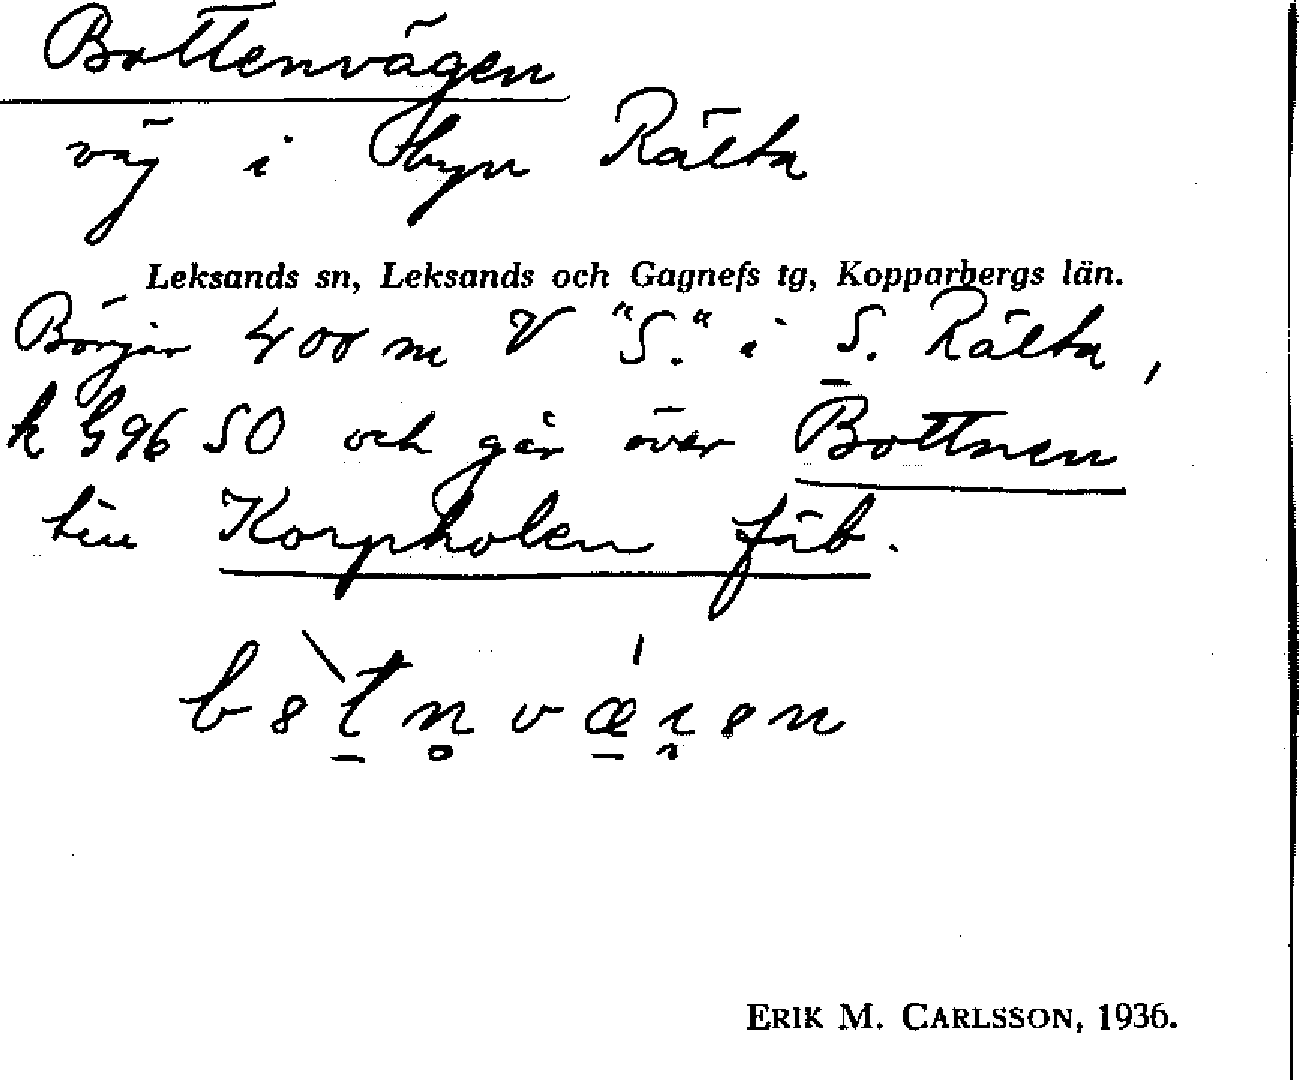 Bottenvägen
väg i byn Rälta
Leksands sn, Leksands och Gagnefs tg, Kopparbergs län.
Börjar 400 m V "S." i S. Rälta,
k G96 SO och går över Bottnen
till Korpholen fäb.
ERIK M. CARLSSON, 1936.